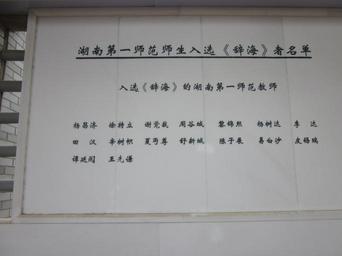 湖南第一师范师生入选《辞海》者名单
入选《辞海》的湖南第一师范教师
杨昌济 徐特立 谢觉哉 周谷城 黎锦熙 杨树达 李达
田汉 辛树帜 夏丏尊 舒新城 陈子展 易白沙 皮锡瑞
谭延闿 王先谦